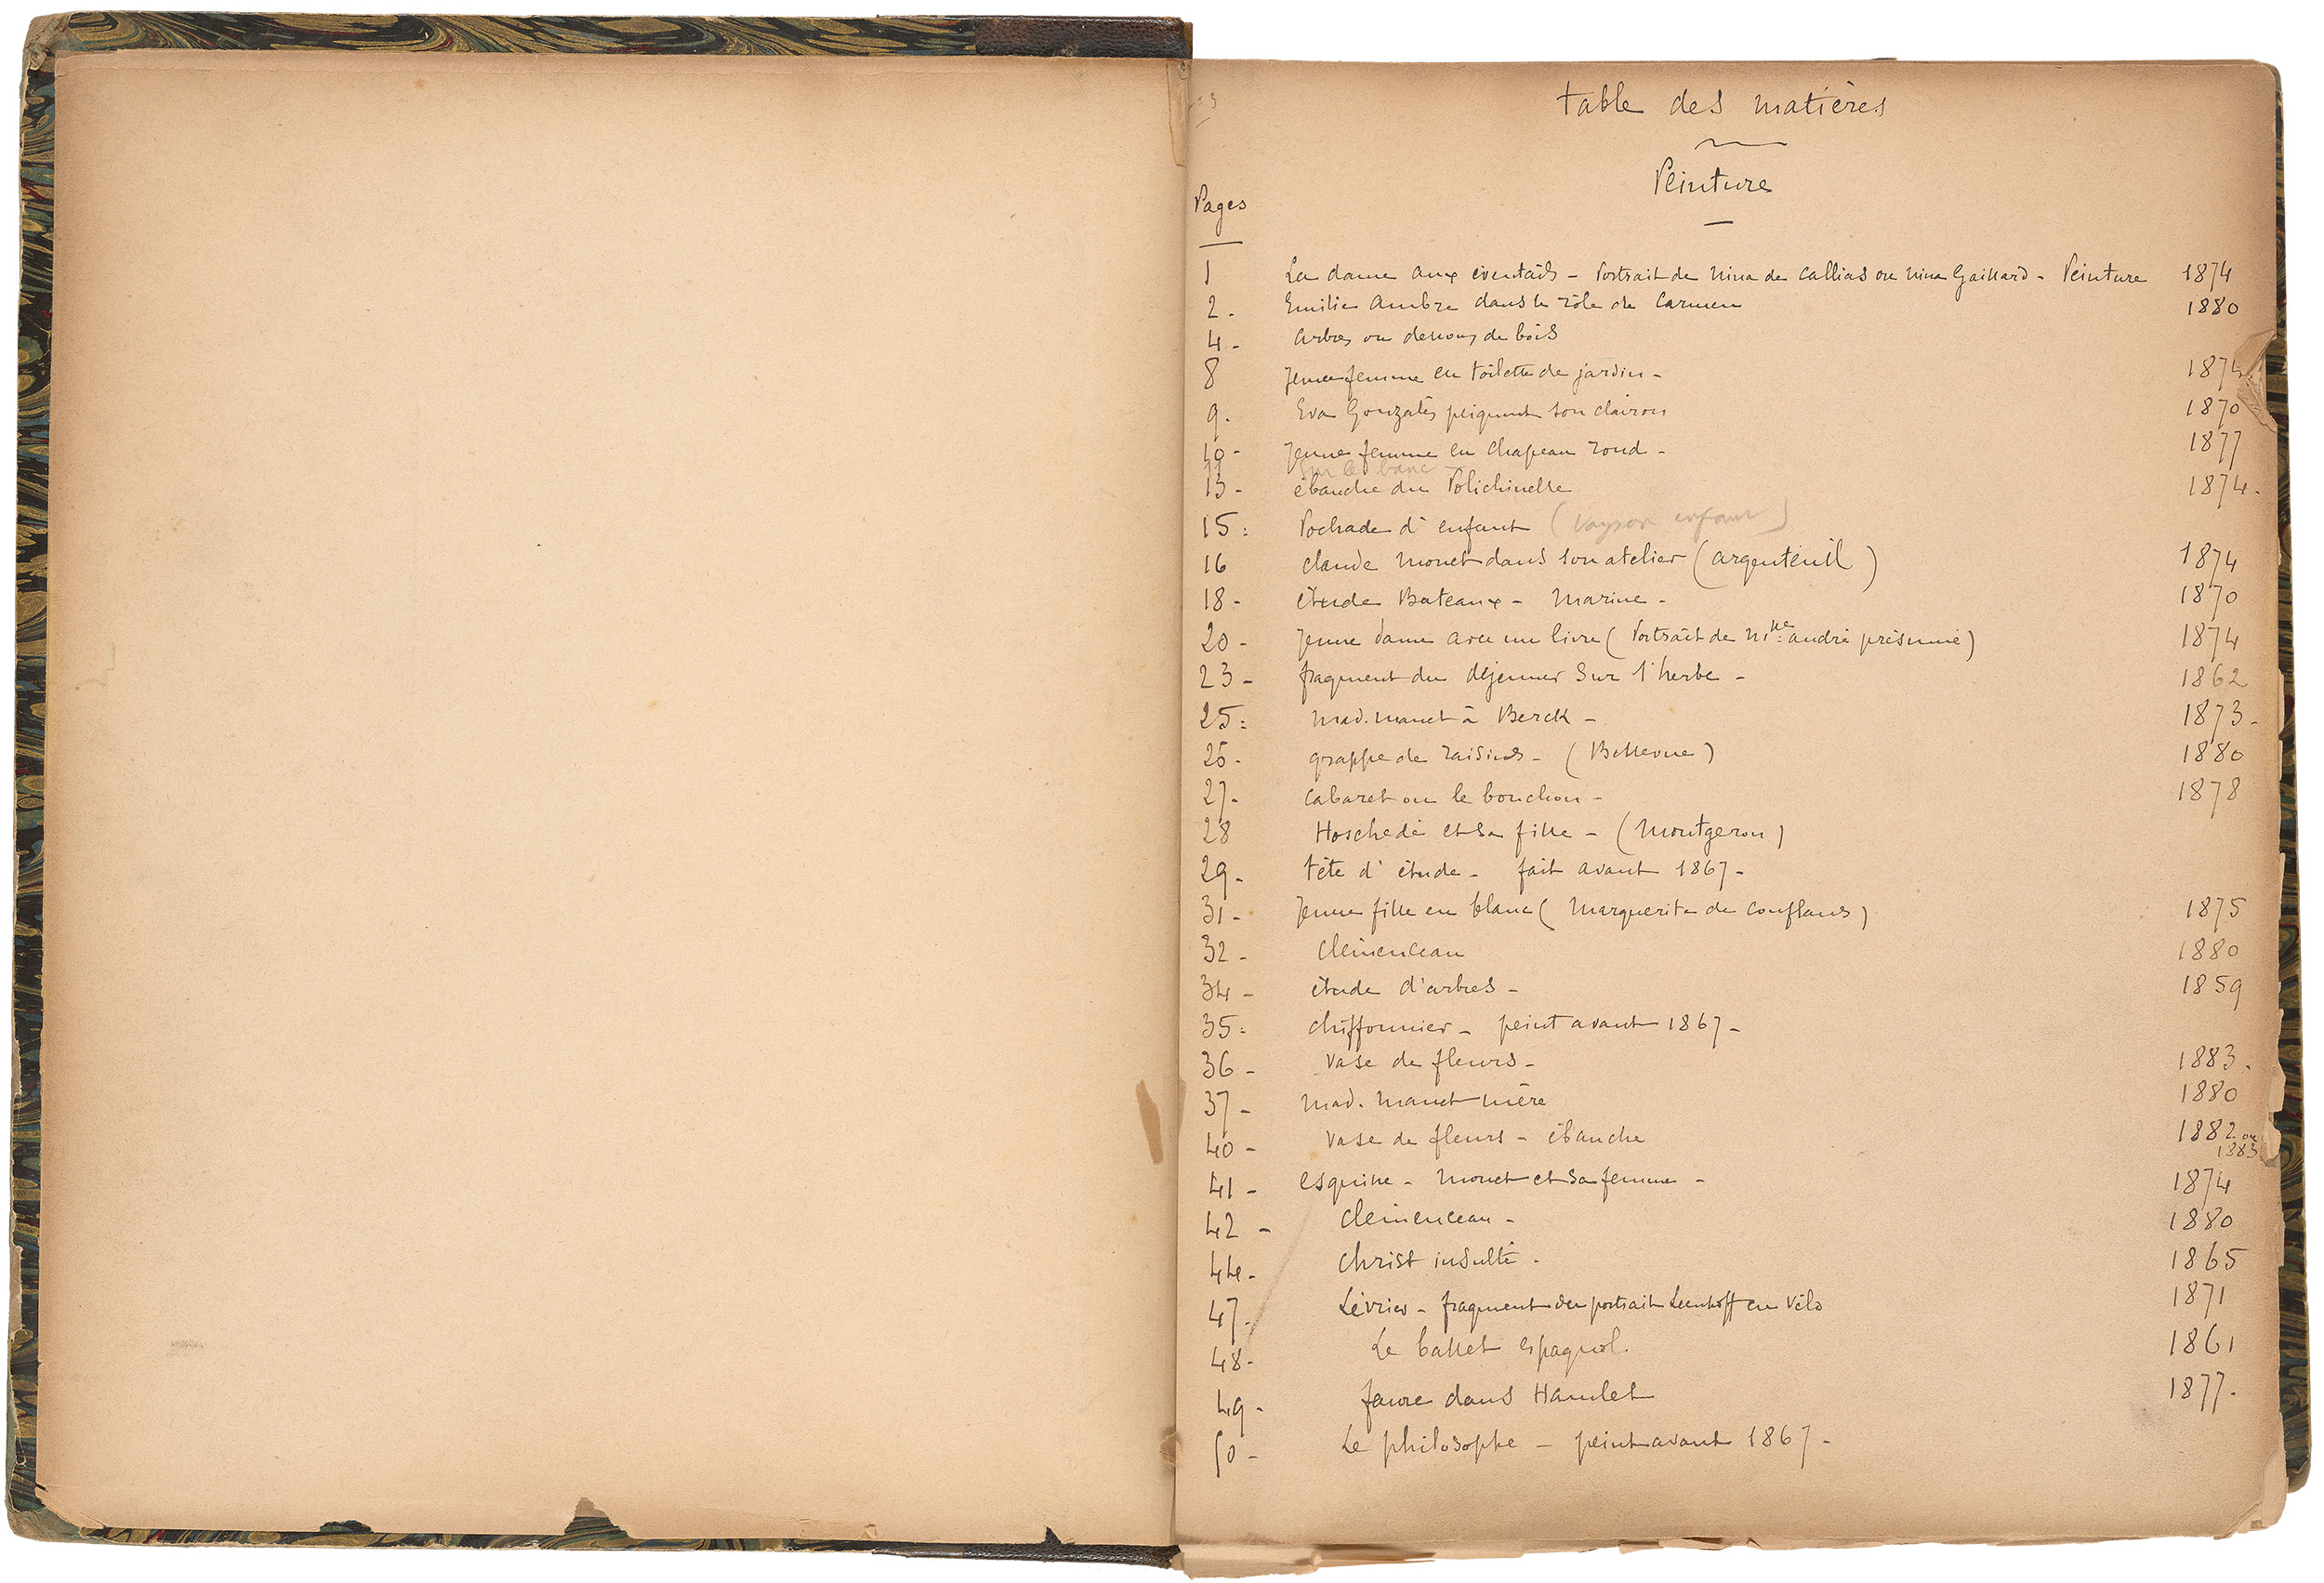 table des matières
Peinture
Pages
1 La dame aux éventails - Portrait de Nina de Callias ou Nina Gaillard - Peinture 1874
2 - Emilie Ambre dans le rôle de Carmen 1880
4 - Arbres ou dessous de bois
8 Jeune femme en toilette de jardin - 1874
9 - Eva Gonzalès peignant son clairon 1870
10 - Jeune femme en chapeau rond - 1877
11 Sur le banc -
13 - ébauche du Polichinelle 1874 -
15 : Pochade d'enfant (Vayson enfant)
16 Claude Monet dans son atelier (Argenteuil) 1874
18 - étude Bateaux - Marine - 1870
20 - Jeune dame avec un livre (Portrait de Mlle andrée présumé) 1874
23 - fragment du déjeuner sur l'herbe - 1862
25 : Mad. Manet à Berck - 1873 -
26 - grappe de raisins - (Bellevue) 1880
27 - Cabaret ou le bouchon - 1878
28 Hoschedé et sa fille - (Montgeron)
29 - tête d'étude - fait avant 1867 -
31 - Jeune fille en blanc (Marguerite de Conflans) 1875
32 - Clémenceau 1880
34 - étude d'arbres - 1859
35 : Chiffonnier - peint avant 1867 -
36 - Vase de fleurs - 1883 -
37 - Mad. Manet mère 1880
40 - Vase de fleurs - ébauche 1882 ou 1883
41 - esquisse - Monet et sa femme - 1874
42 - Clémenceau - 1880
44 - Christ insulté - 1865
47 - Lévrier - fragment du portrait Leenhoff en Vélo 1871
48 - Le ballet espagnol 1861
49 - faure dans Hamlet 1877 -
50 - Le philosophe - peint avant 1867 -